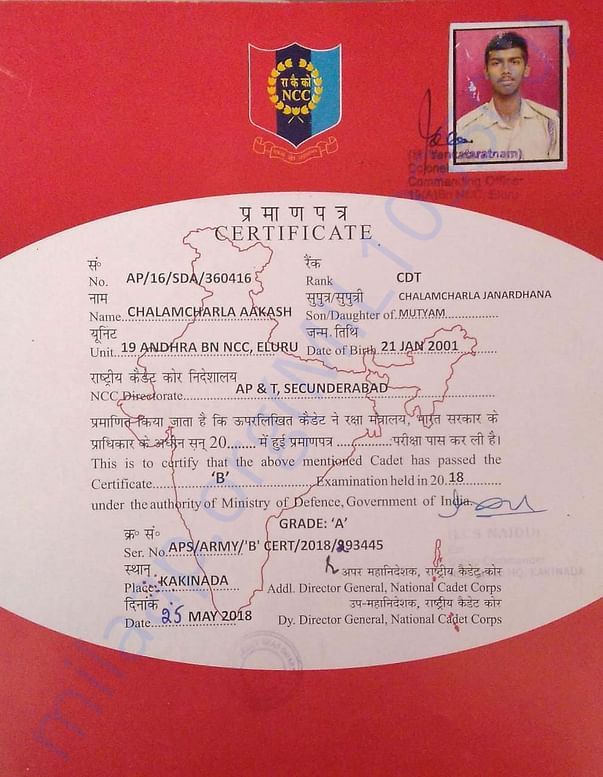 रा कै को
NCC
Colonel
Commanding Officer
प्रमाणपत्र
CERTIFICATE
सं०
No. AP/16/SDA/360416
रैंक
Rank CDT
नाम
Name CHALAMCHARLA AAKASH
सुपुत्र/सुपुत्री CHALAMCHARLA JANARDHANA
Son/Daughter of MUTYAM
यूनिट
Unit 19 ANDHRA BN NCC, ELURU
जन्म तिथि
Date of Birth 21 JAN 2001
राष्ट्रीय कैडेट कोर निदेशालय
NCC Directorate AP & T, SECUNDERABAD
प्रमाणित किया जाता है कि ऊपरलिखित कैडेट ने रक्षा मंत्रालय, भारत सरकार के
प्राधिकार के अधीन सन् 20........ में हुई प्रमाणपत्र ............. परीक्षा पास कर ली है।
This is to certify that the above mentioned Cadet has passed the
Certificate 'B' Examination held in 20 18
under the authority of Ministry of Defence, Government of India.
GRADE: 'A'
क्र० सं०
Ser. No. APS/ARMY/'B' CERT/2018/293445
स्थान
Place: KAKINADA
दिनांक
Date 25 MAY 2018
अपर महानिदेशक, राष्ट्रीय कैडेट कोर
Addl. Director General, National Cadet Corps
उप-महानिदेशक, राष्ट्रीय कैडेट कोर
Dy. Director General, National Cadet Corps